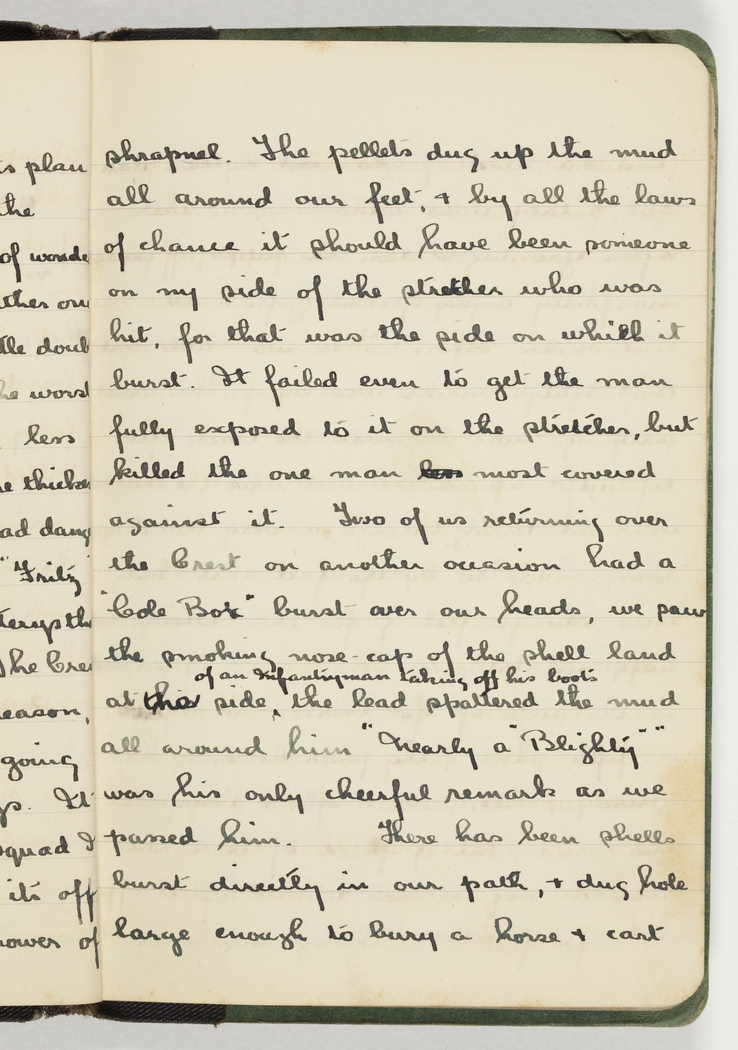 shrapnel. The pellets dug up the mud
all around our feet, & by all the laws
of chance it should have been someone
on my side of the stretcher who was
hit, for that was the side on which it
burst. It failed even to get the man
fully exposed to it on the stretcher, but
killed the one man less most covered
against it. Two of us returning over
the Crest on another occasion had a
"Cole Box" burst over our heads, we saw
the smoking nose-cap of the shell land
of an Infantryman taking off his boots
at the side, the lead spattered the mud
all around him "Nearly a "Blighty" "
was his only cheerful remark as we
passed him. There has been shells
burst directly in our path, & dug hole
large enough to bury a horse & cart
s plan
the
of wonde
ther on
tle doub
he worst
less
e thicke
ad dang
"Fritz
terupth
The Cre
eason,
going
gs. It
squad I
its off
power of